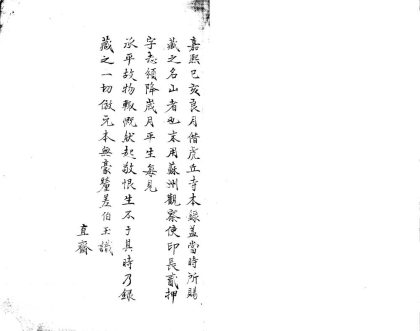 嘉熙己亥良月借虎丘寺本錄蓋當時所賜
藏之名山者也末用蘇州觀察使印長貳押
字志頒降歲月平生每見
承平故物輒慨然起敬恨生不于其時乃錄
藏之一切倣元本無豪釐差伯玉識
直齋